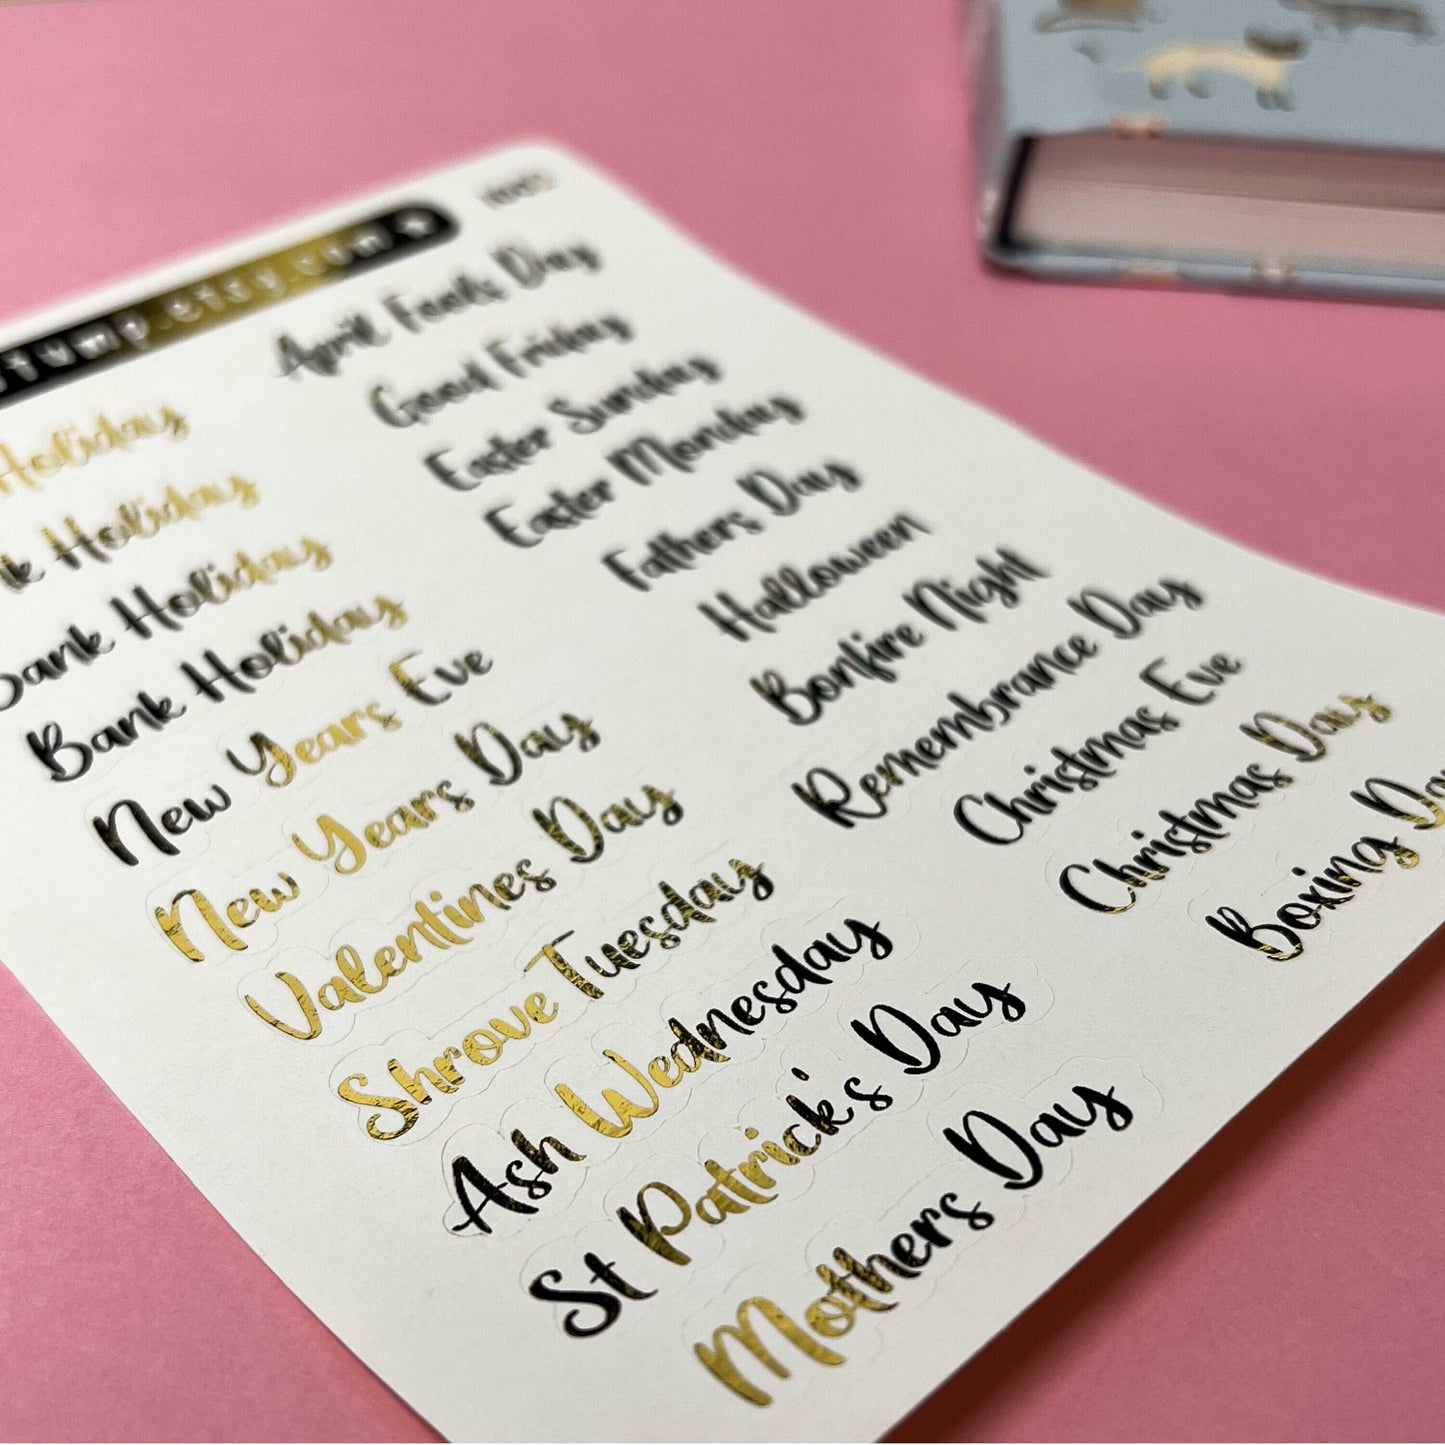 Holiday
Holiday
Bank Holiday
Bank Holiday
New Years Eve
New Years Day
Valentines Day
Shrove Tuesday
Ash Wednesday
St Patrick's Day
Mothers Day
April Fools Day
Good Friday
Easter Sunday
Easter Monday
Fathers Day
Halloween
Bonfire Night
Remembrance Day
Christmas Eve
Christmas Day
Boxing Day